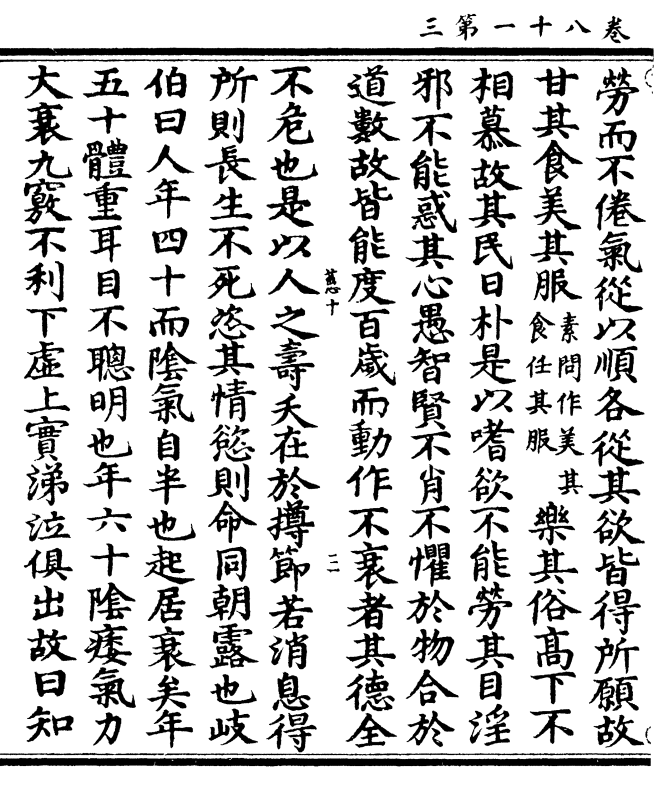 三第一十八卷
勞而不倦氣從以順各從其欲皆得所願故
甘其食美其服素問作美其食任其服樂其俗高下不
相慕故其民日朴是以嗜欲不能勞其目淫
邪不能惑其心愚智賢不肖不懼於物合於
道數故皆能度百歲而動作不衰者其德全
不危也是以人之壽夭在於撙節若消息得
所則長生不死恣其情慾則命同朝露也岐
伯曰人年四十而陰氣自半也起居衰矣年
五十體重耳目不聰明也年六十陰痿氣力
大衰九竅不利下虛上實涕泣俱出故曰知